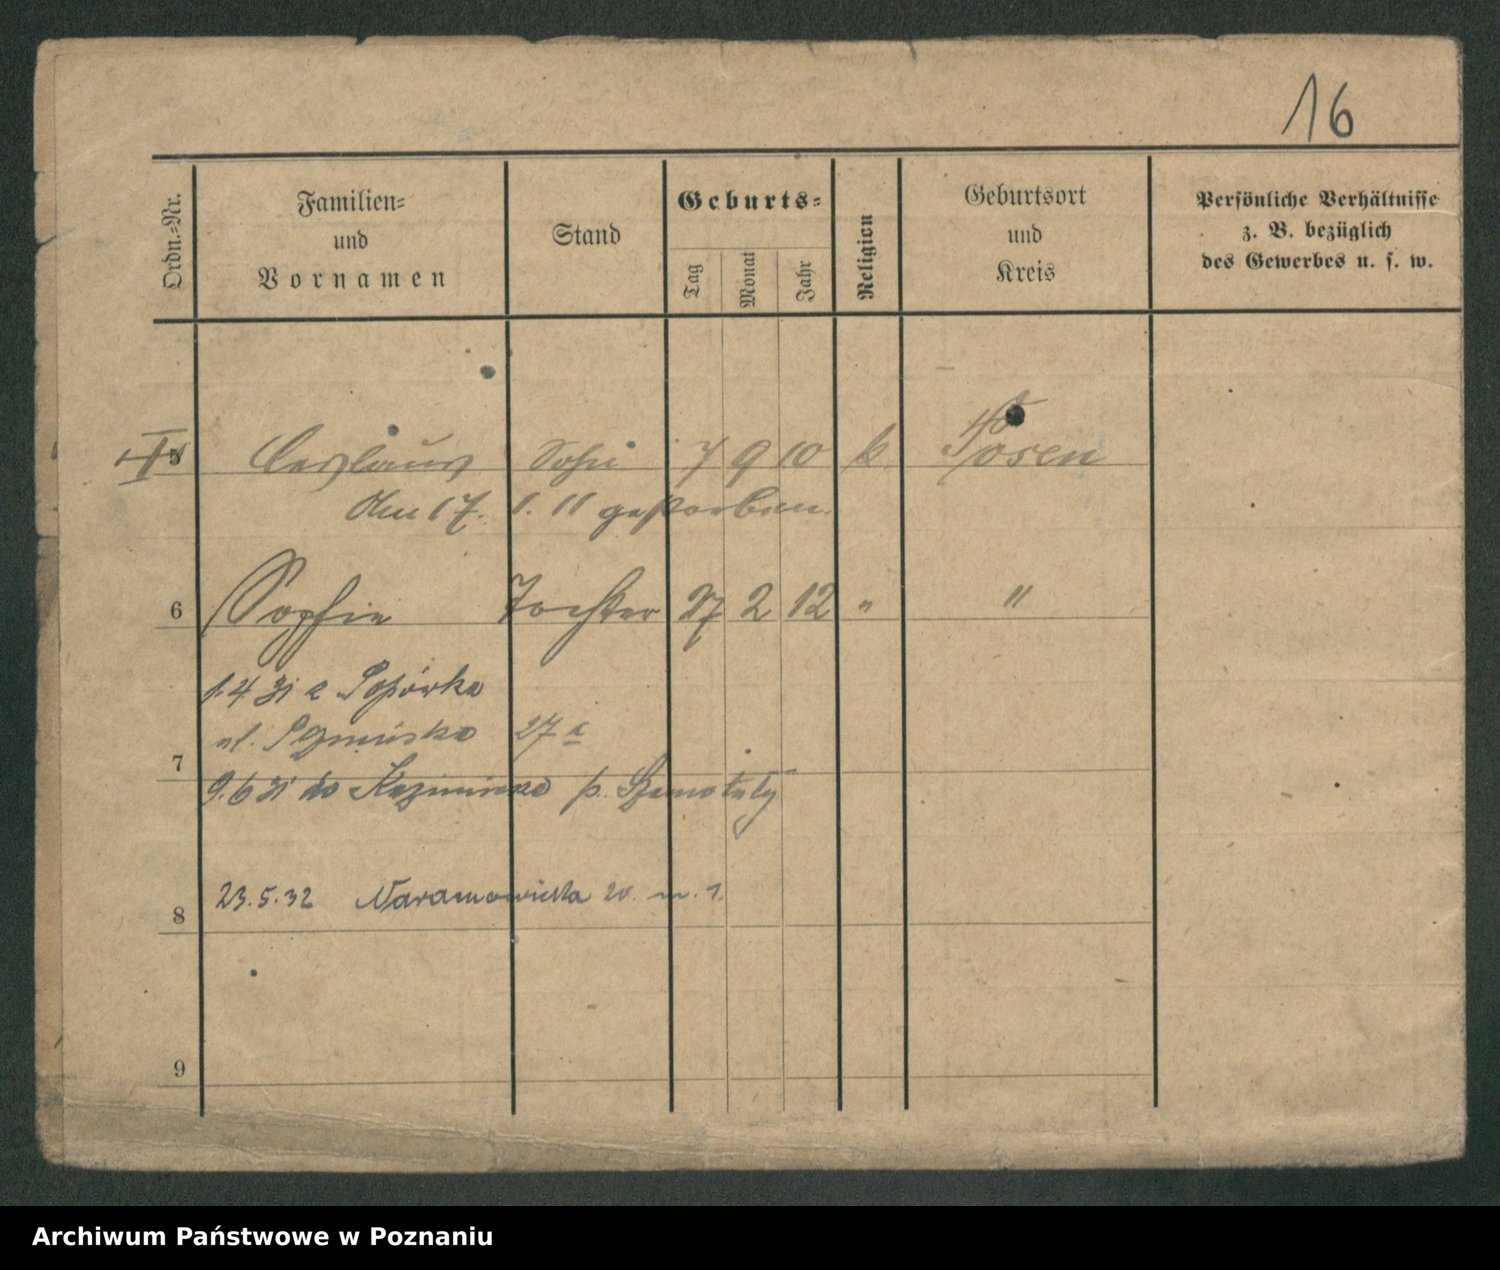 16
Ordn.-Nr.
Familien-
und
Vornamen
Stand
Geburts-
Tag
Monat
Jahr
Religion
Geburtsort
und
Kreis
Persönliche Verhältnisse
z. B. bezüglich
des Gewerbes u. s. w.
5 Ceslaus Sohn 7 9 10 k. Posen
Am 17. 1. 11 gestorben.
6 Sophie Tochter 27 2 12 " "
1.4 31 z
ul. 27 a
7
9.6 31 do Kazimierza p. Szamotuły
8 23.5.32 Naramowicka 20 m. 1.
9
Archiwum Państwowe w Poznaniu